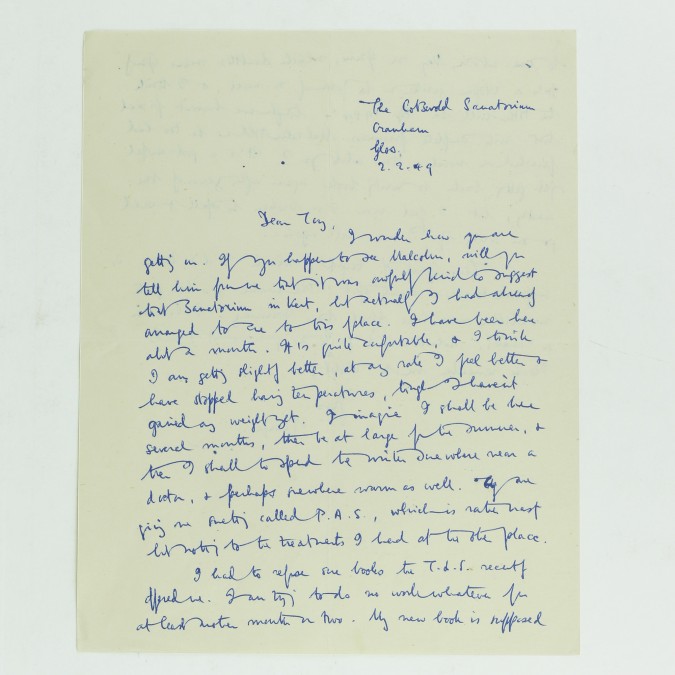 The Cotswold Sanatorium
Cranham
Glos.
2. 2. 49
Dear Tony,
I wonder how you are
getting on. If you happen to see Malcolm, will you
tell him from me that it was awfully kind to suggest
that Sanatorium in Kent, but actually I had already
arranged to come to this place. I have been here
about a month. It is quite comfortable, & I think
I am getting slightly better, at any rate I feel better &
have stopped having temperatures, though I haven't
gained any weight yet. I imagine I shall be here
several months, then be at large for the summer, &
then I shall have to spend the winter somewhere near a
doctor, & perhaps somewhere warm as well. They are
giving me something called P.A.S., which is rather nasty
but nothing to the treatments I had at the other place.
I had to refuse some books the T.L.S. recently
offered me. I am trying to do no work whatever for
at least another month or two. My new book is supposed